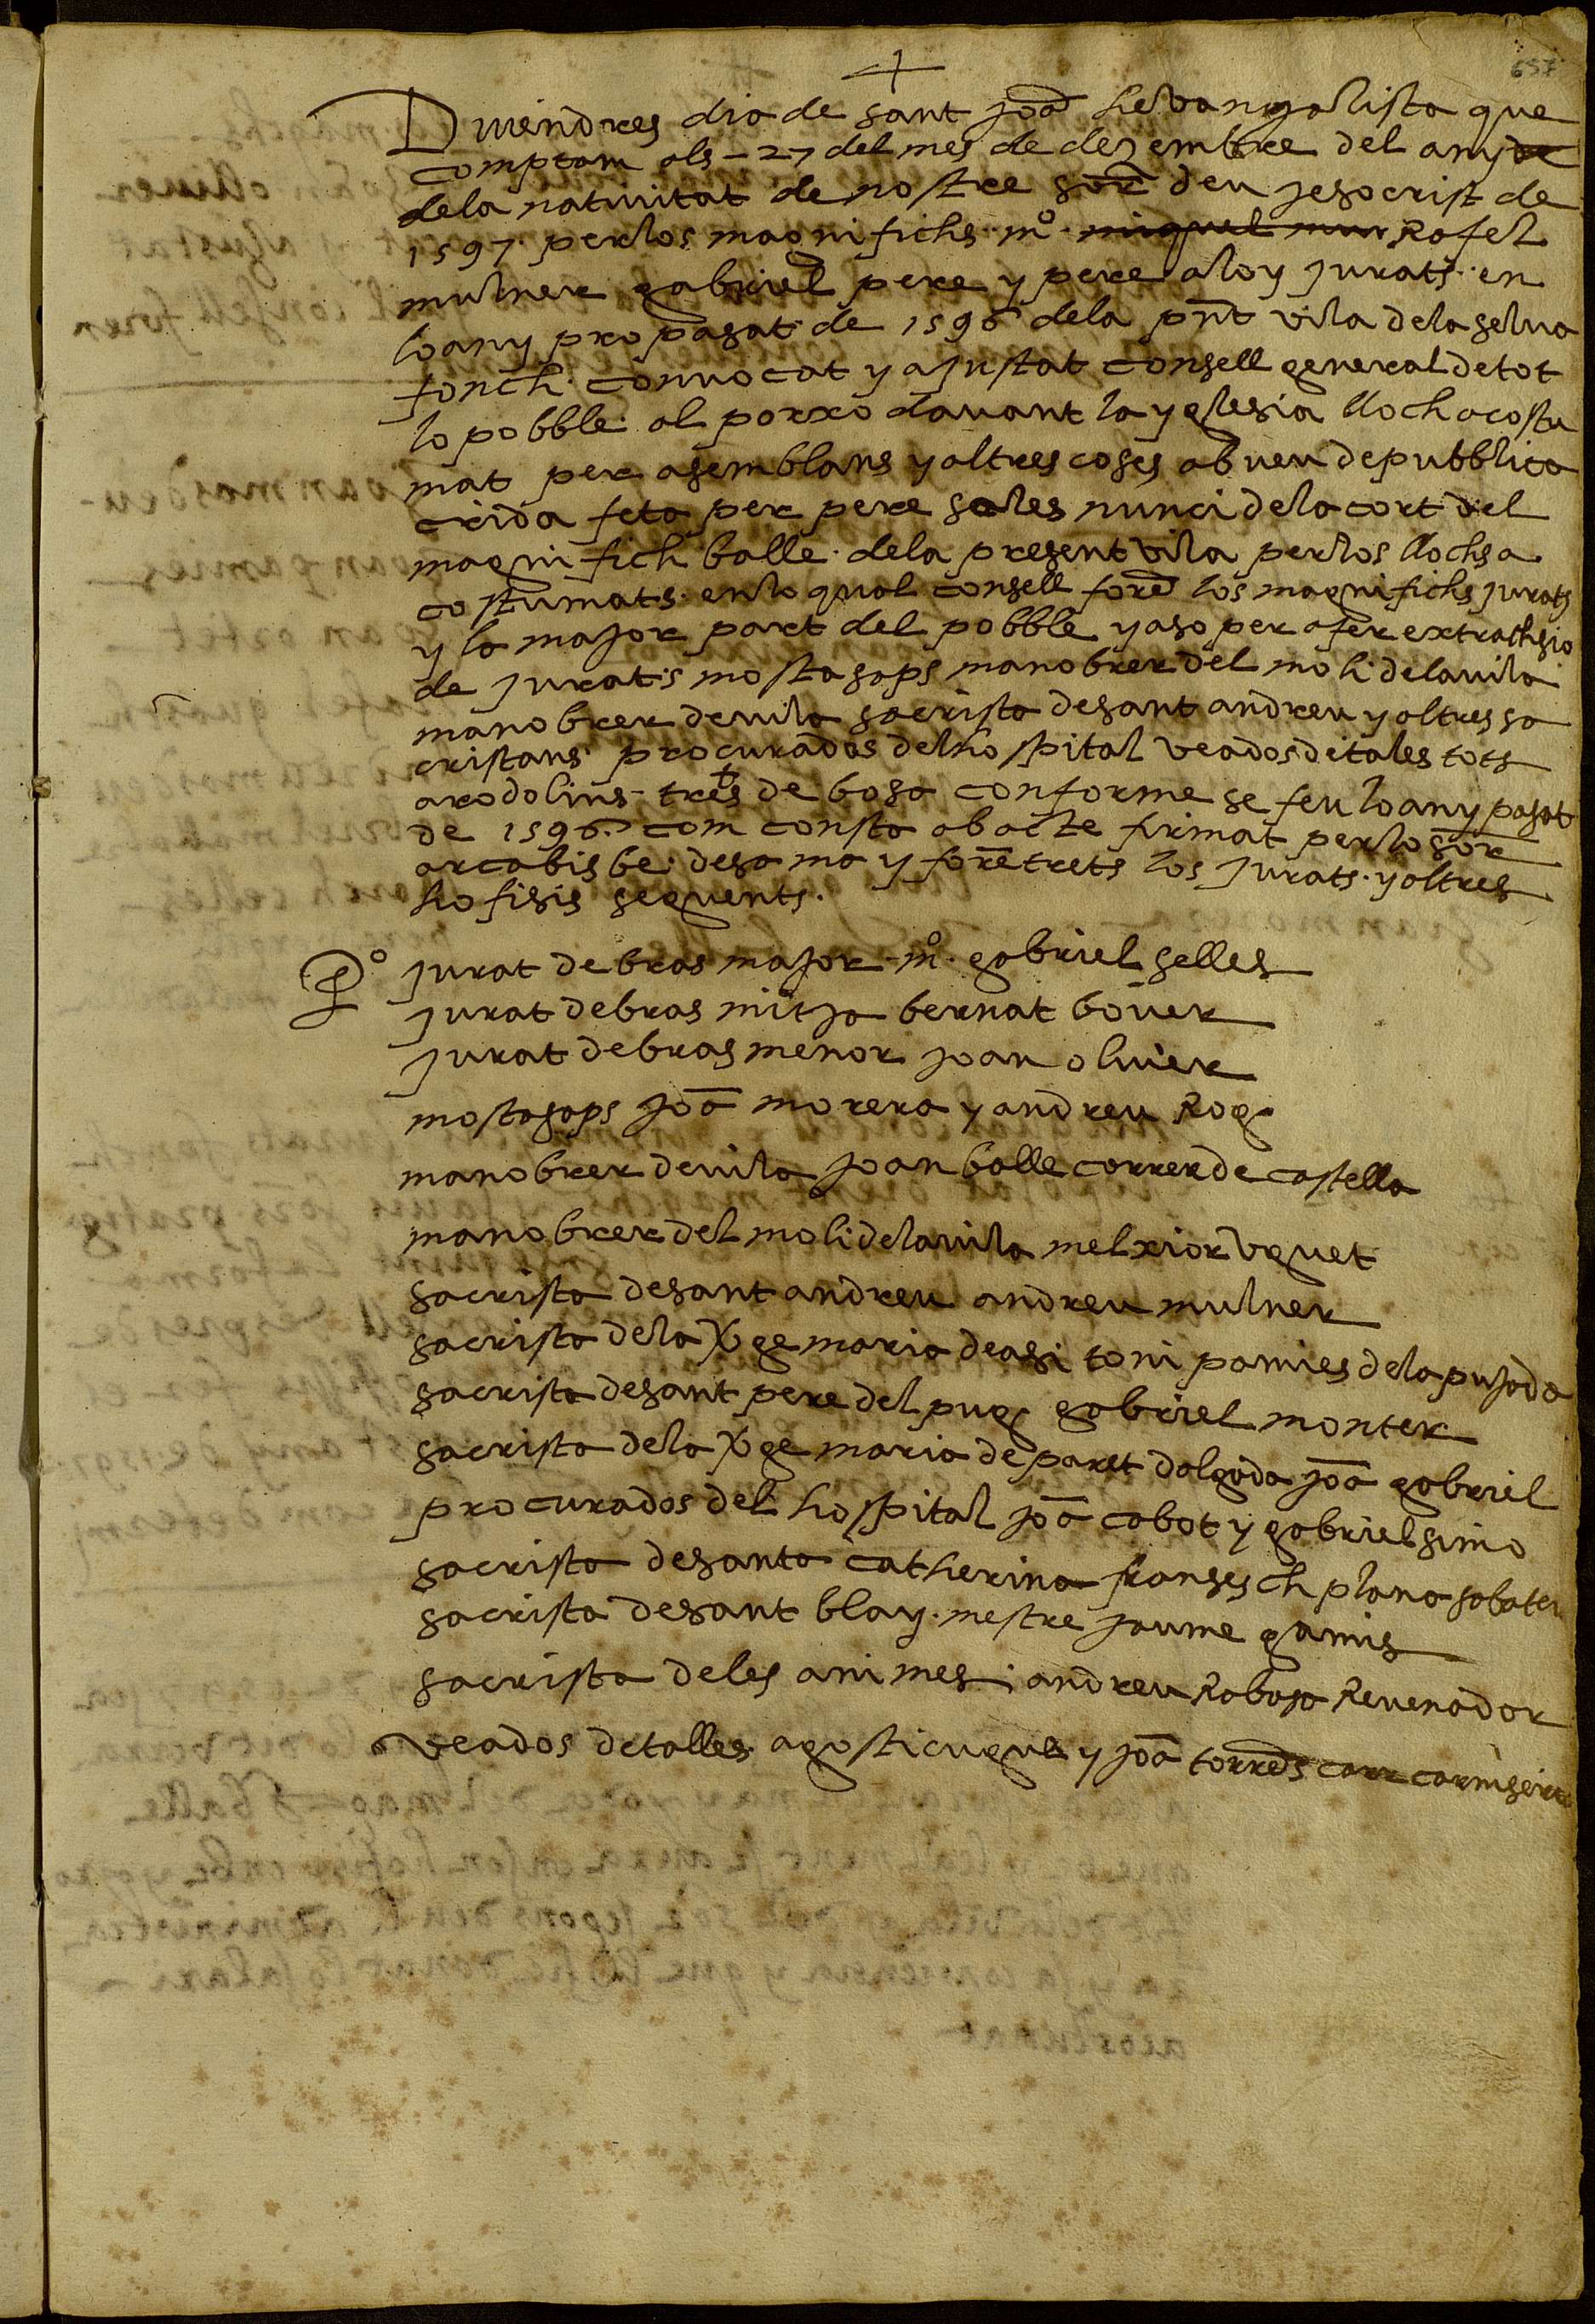 657
Divendres dia de sant joā hevangalista que
comptam als - 27 del mes de dezembre del any de
dela nativitat de nostre sōr deu jesocrist de
1597. perlos magnifichs mº miquel mun Rafel
mulner gabriel pere y pere aloy jurats en
loany propasat de 1596 dela pn̄t vila dela selva
fonch convocat y ajustat consell general detot
lo pobble al porxo davant la yglesia lloch acostu
mat per asemblans y altres coses ab veu de pubblica
crida feta per pere sales nunci dela cort del
magnifich balle dela present vila perlos llochs a
costumats enlo qual consell forē los magnifichs jurats
y la major part del pobble y aso per afer extrachsio
de jurats mostasaps manobrer del moli delavila
manobrer devila sacrista desant andreu y altres sa
cristans procurados delhospital veados detales tots
arodolins trets de bosa conforme se feu loany pasat
de 1596 com consta ab acte firmat perlo sōr
arcabisbe desa ma y forē trets los jurats y altres
hofisis seguents.
Pº jurat de bras major mº gabriel selles
jurat debras mitja bernat bover
jurat debras menor joan oliver
mostasaps joā morera y andreu Rog
manobrer devila joan balle carrer de castella
manobrer del moli delavila melxior uguet
sacrista desant andreu andreu mulner
sacrista dela Vge maria deasi toni pamies dela pujada
sacrista desant pere del pug gabriel monter
sacrista dela Vge maria de paret dalgada joā gabriel
procurados del hospital joā cabot y gabriel simo
sacrista desanta catherina fransesch plana sabater
sacrista desant blay. mestre jaume gamis
sacrista deles animes andreu Rabasa Revenador
veados detalles agosti cugul y joā torrēs carr carniseire